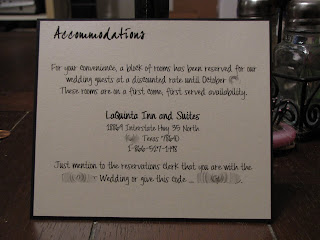 Accommodations
For your convenience, a block of rooms has been reserved for our
wedding guests at a discounted rate until October
These rooms are on a first come, first served availability.
LaQuinta Inn and Suites
Interstate Hwy 35 North
Texas 78640
Just mention to the reservations clerk that you are with the
Wedding or give this code